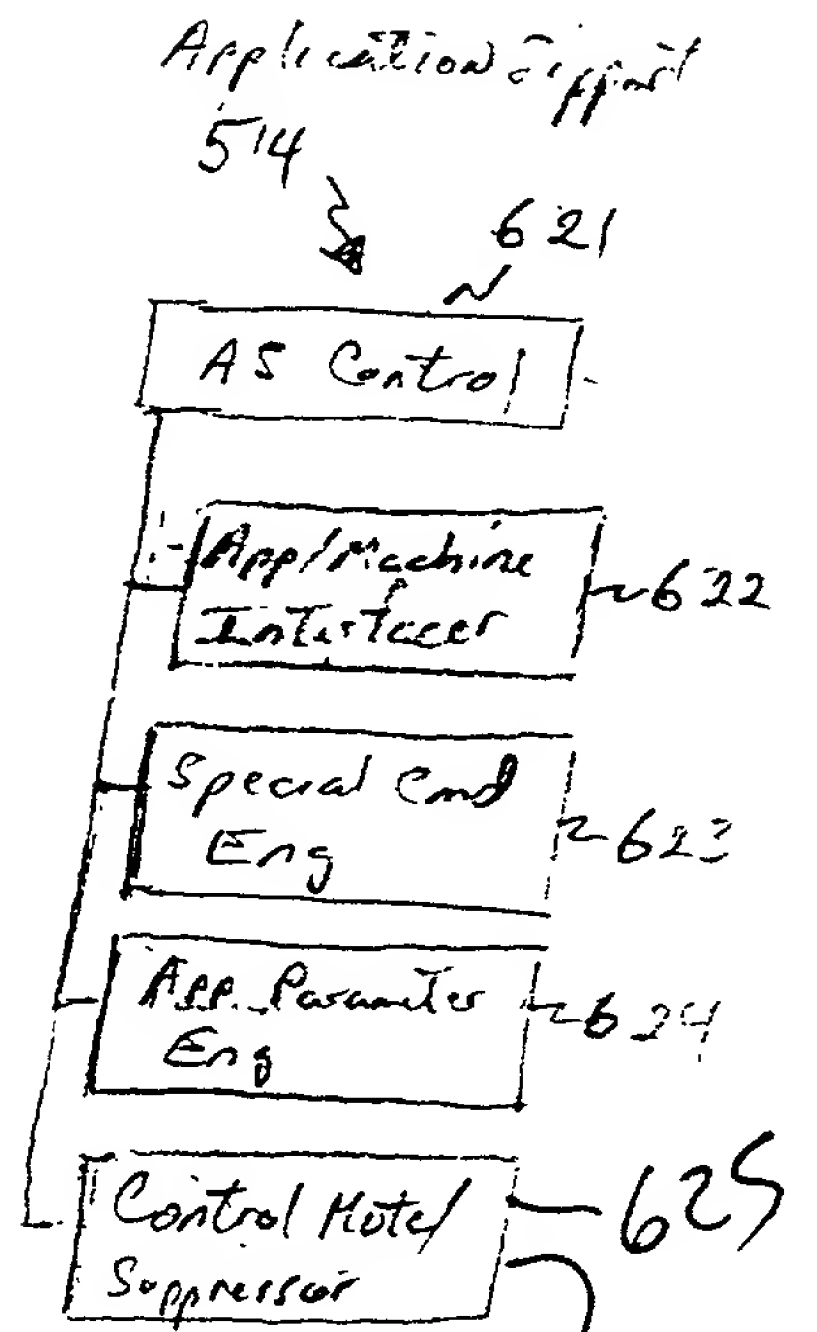 Application Support
514
621
AS Control
App/Machine
Interfacer
622
Special Cmd
Eng
623
App. Parameter
Eng
624
Control Mute/
Suppressor
625